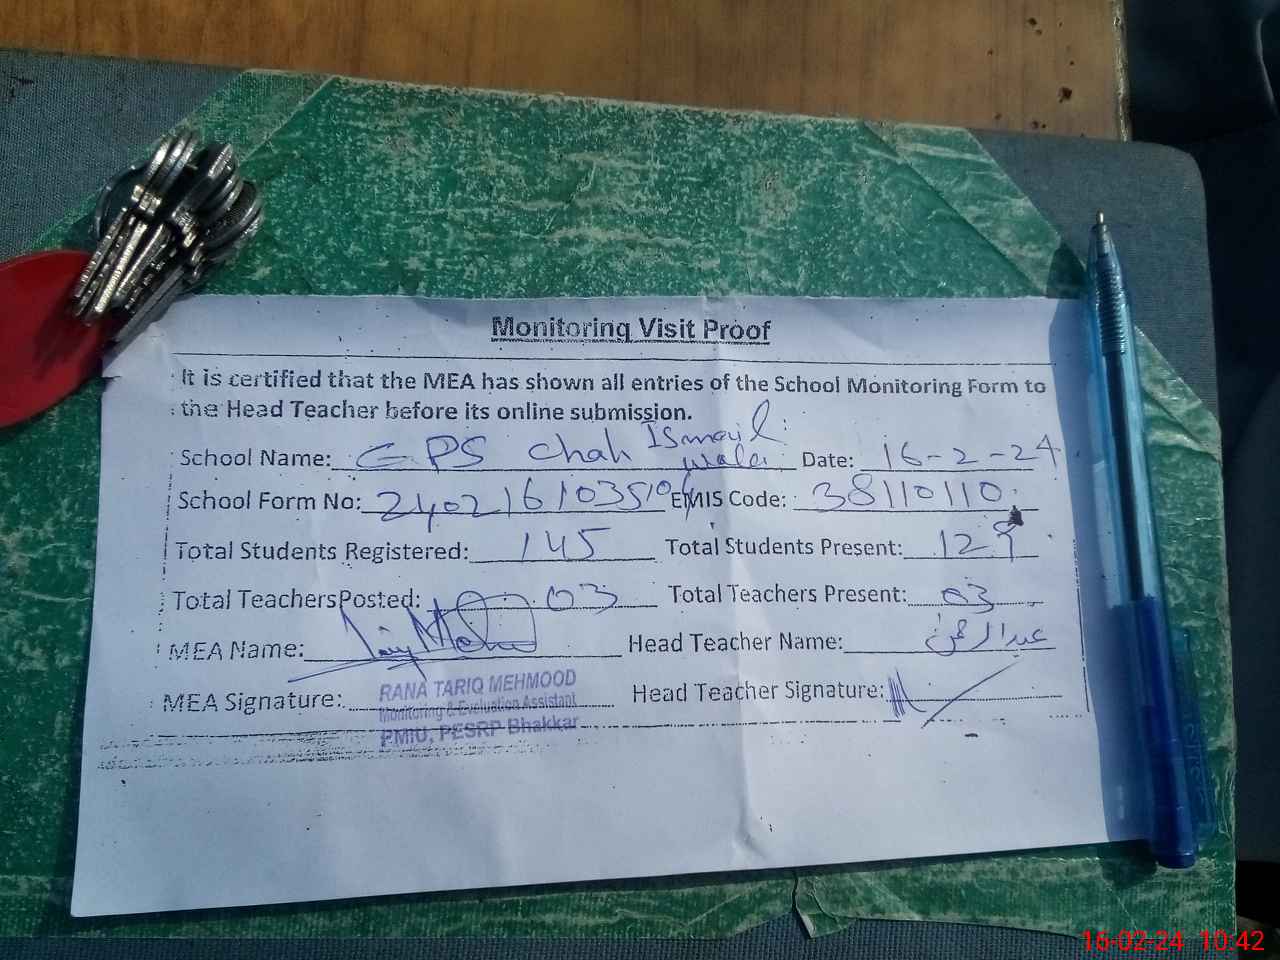 Monitoring Visit Proof
It is certified that the MEA has shown all entries of the School Monitoring Form to
the Head Teacher before its online submission.
School Name: GPS Chah Ismail Wala Date: 16-2-24
School Form No: EMIS Code: 38110110
Total Students Registered: 145 Total Students Present: 129
Total Teachers Posted: 03 Total Teachers Present: 03
MEA Name: Head Teacher Name: عبدالرحمٰن
MEA Signature: RANA TARIQ MEHMOOD Head Teacher Signature:
Monitoring & Evaluation Assistant
PMIU, PESRP Bhakkar
16-02-24 10:42